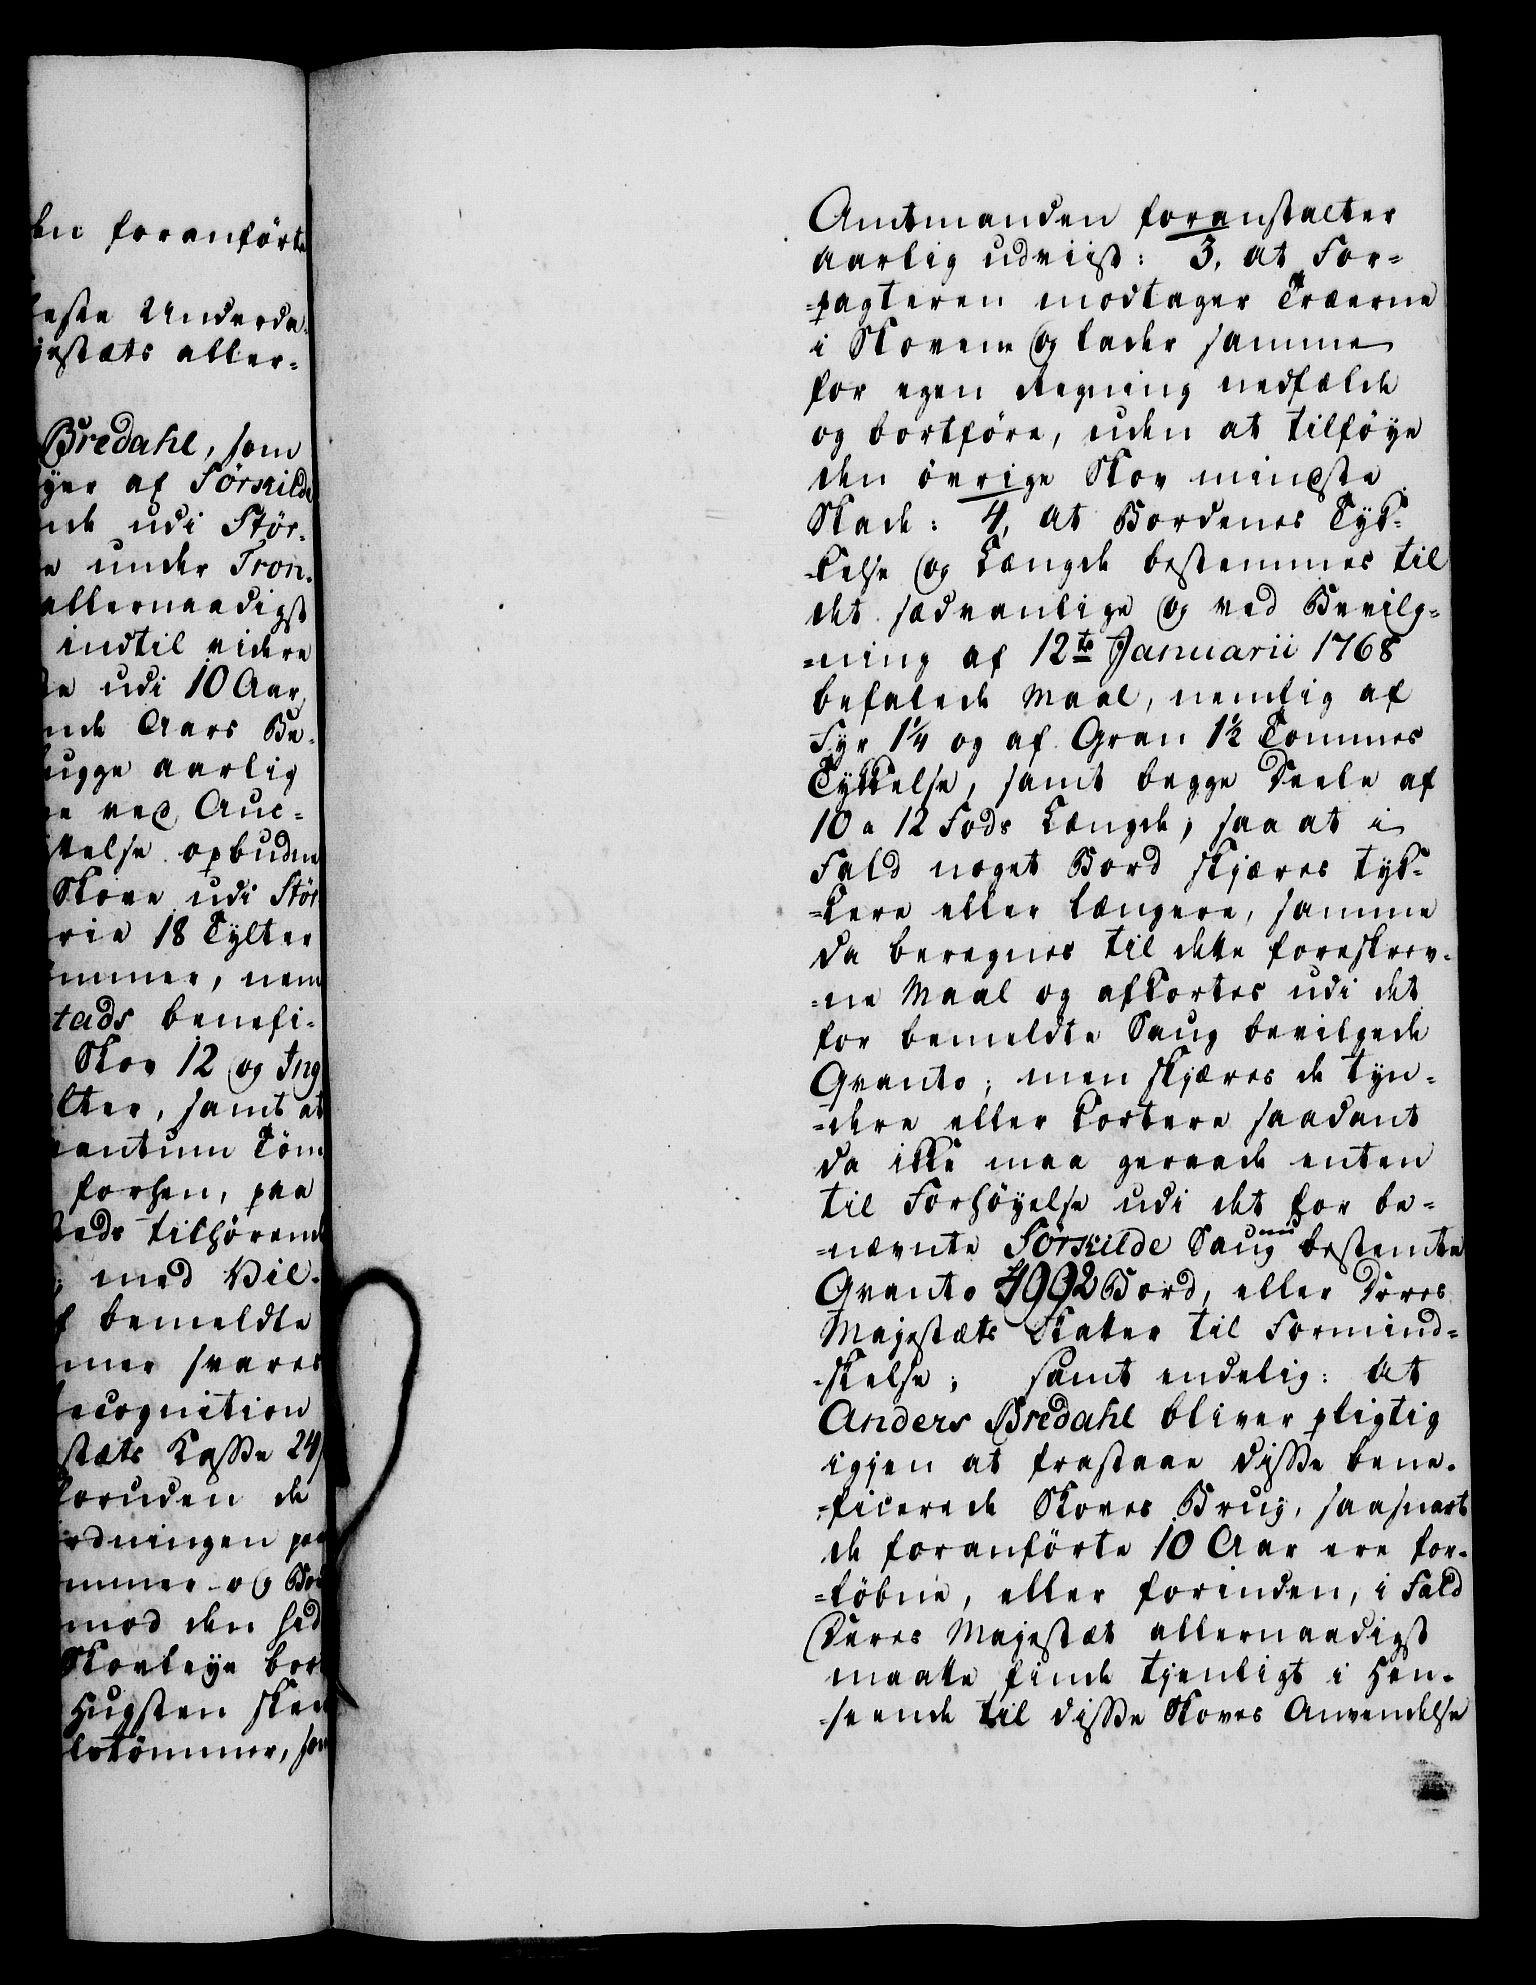 en foranførte
este Underda-
jestæts aller-
Bredahl, som
yer af Sörkilde
nde udi Stör-
e under Tron-
allernaadigst
indtil videre
e udi 10 Aar,
nde Aars Be-
ugge aarlig
e ved Auc-
telse opbudne
Skove udi Stör
rie 18 Tylter
mmer, nem
tads benefi-
Skov 12 og Ing
lter, samt at
antum Töm
forhen, paa
teds tilhørende
med Vil-
f bemeldte
mer svares
ecognition
stæts Kasse 24
foruden de
rdningen paa
mmer og Bor
mod den sid
Skovleye bor
Hugsten skee
lstömmer, som
Amtmanden foranstalter
aarlig udviist: 3, at For=
=pagteren modtager Træerne
i Skoven og lader samme
for egen Regning nedfælde
og bortföre, uden at tilföye
den övrige Skov mindste
Skade: 4, At Bordenes Tyk=
=kelse og Længde bestemmes til
det sædvanlige og ved Bevilg=
=ning af 12te Januarii 1768
befalede Maal, nemlig af
Fyr 1¼ og af Gran 1½ Tommes
Tykkelse, samt begge Deele af
10 a 12 Fods Længde, saa at i
Fald noget Bord skjæres tyk=
=kere eller længere, samme
da beregnes til dette foreskrev=
=ne Maal og afkortes udi det
for bemeldte Saug bevilgede
Qvanto; men skjæres de tyn=
=dere eller kortere saadant
da ikke maa geraade enten
til Forhöyelse udi det for be=
=nævnte Sörkilde Saug bestemte
Qvanto 4992 Bord, eller Deres
Majestæts Skatter til Formind=
=skelse; samt endelig: At
Anders Bredahl bliver pligtig
igjen at fratraae disse bene=
=ficerede Skoves Brug, saasnart
de foranförte 10 Aar ere for=
=löbne, eller forinden, i Fald
Deres Majestæt allernaadigst
maatte finde tjenligt i Hen=
=seende til disse Skoves Anvendelse